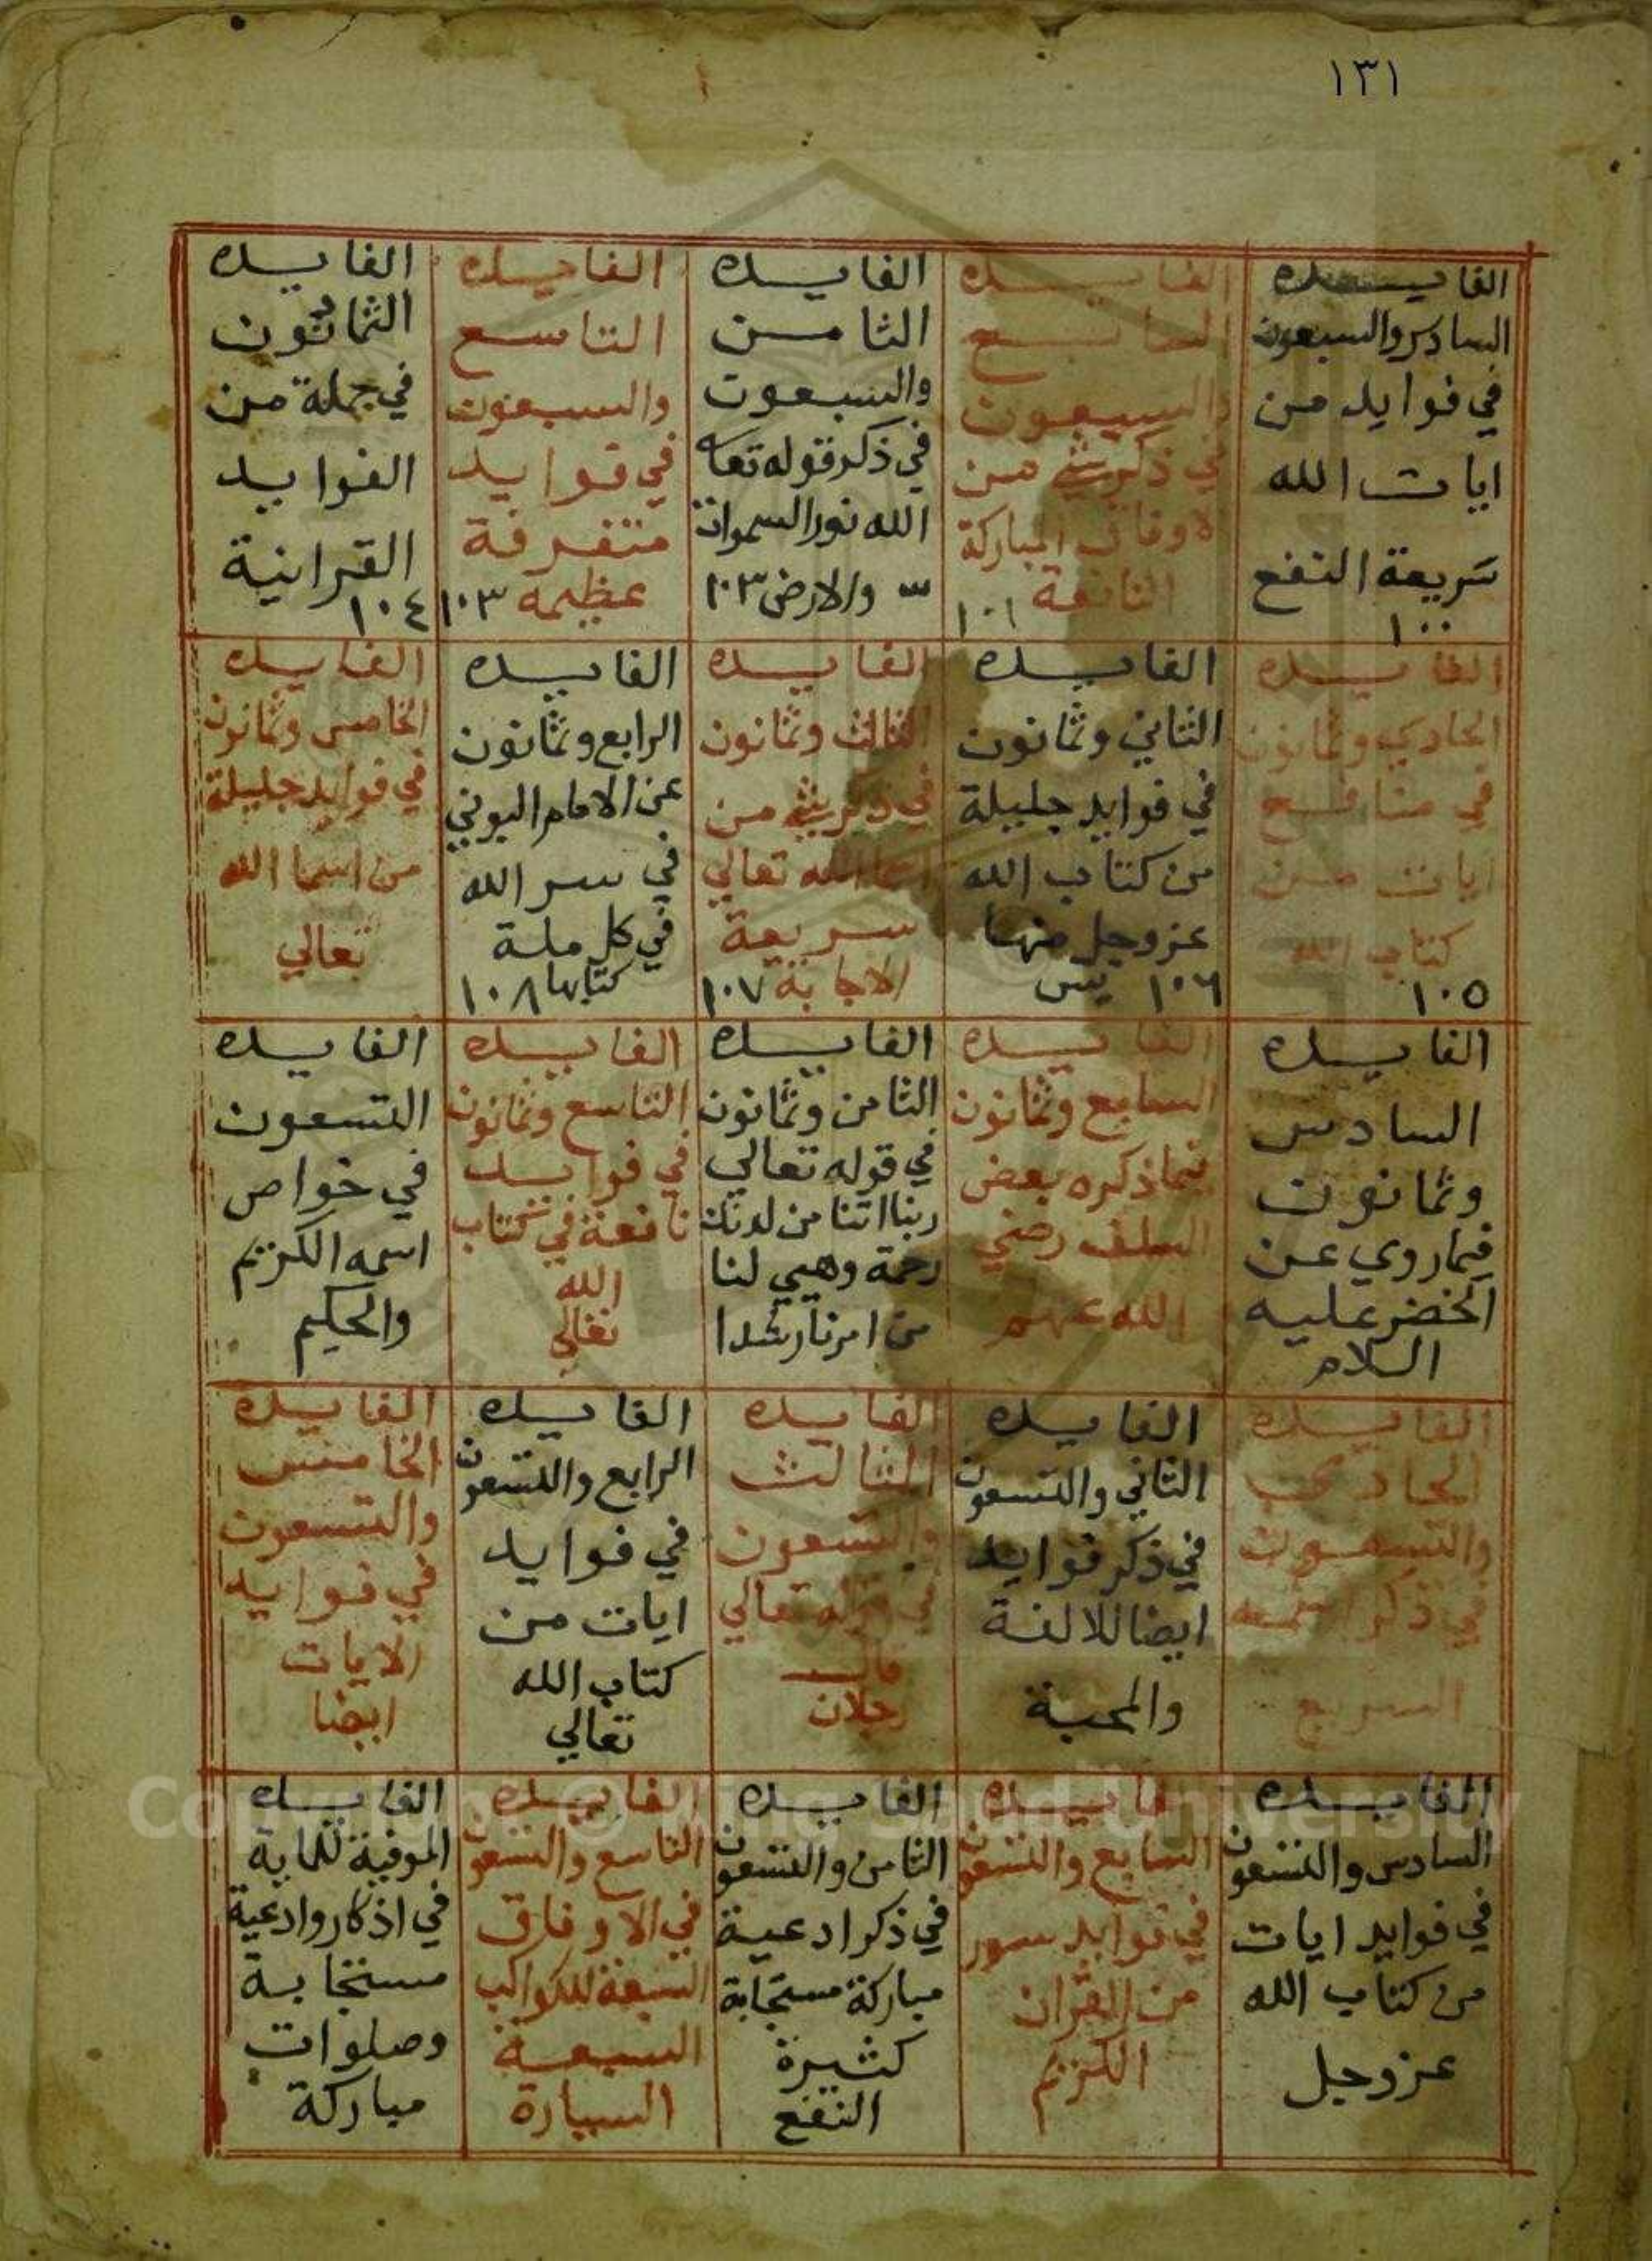 ١٣١
الفايده
السادس والسبعون
في فوايد من
ايات الله
سريعة النفع
١٠٠
الفايده
السابع
والسبعون
في ذكر شي من
الاوفاق المباركة
النافعة ١٠١
الفايده
الثامن
والسبعون
في ذكر قوله تعا
الله نور السموات
والارض ١٠٣
الفايده
التاسع
والسبعون
في فوايد
متفرقة
عظيمه ١٠٣
الفايده
الثمانون
في جملة من
الفوايد
القرانية
١٠٤
الفايده
الحادي وثمانون
في منافع
ايات من
كتاب الله
١٠٥
الفايده
الثاني وثمانون
في فوايد جليلة
من كتاب الله
عز وجل منها
يس ١٠٦
الفايده
الثالث وثمانون
في ذكر شي من
اسما الله تعالي
سريعة
الاجابة ١٠٧
الفايده
الرابع وثمانون
عن الامام البوني
في سر الله
في كل ملة
كتابها ١٠٨
الفايده
الخامس وثمانون
في فوايد جليلة
من اسما الله
تعالي
الفايده
السادس
وثمانون
فيما روي عن
الخضر عليه
السلام
الفايده
السابع وثمانون
فيما ذكره بعض
السلف رضي
الله عنهم
الفايده
الثامن وثمانون
في قوله تعالي
ربنا اتنا من لدنك
رحمة وهيي لنا
من امرنا رشدا
الفايده
التاسع وثمانون
في فوايد
نافعة في كتاب
الله
تعالي
الفايده
التسعون
في خواص
اسمه الكريم
والحكيم
الفايده
الحادي
والتسعون
في ذكر اسمه
السريع
الفايده
الثاني والتسعون
في ذكر فوايد
ايضا للالفة
والمحبة
الفايده
الثالث
والتسعون
في قوله تعالي
قال
رجلان
الفايده
الرابع والتسعون
في فوايد
ايات من
كتاب الله
تعالي
الفايده
الخامس
والتسعون
في فوايد
الايات
ايضا
الفايده
السادس والتسعون
في فوايد ايات
من كتاب الله
عز وجل
الفايده
السابع والتسعون
في فوايد سور
من القران
الكريم
الفايده
الثامن والتسعون
في ذكر ادعية
مباركة مستجابة
كثيرة
النفع
الفايده
التاسع والتسعون
في الاوفاق
السبعة للكواكب
السبعة
السيارة
الفايده
الموفية للماية
في اذكار وادعية
مستجابة
وصلوات
مباركة
Copyright © King Saud University